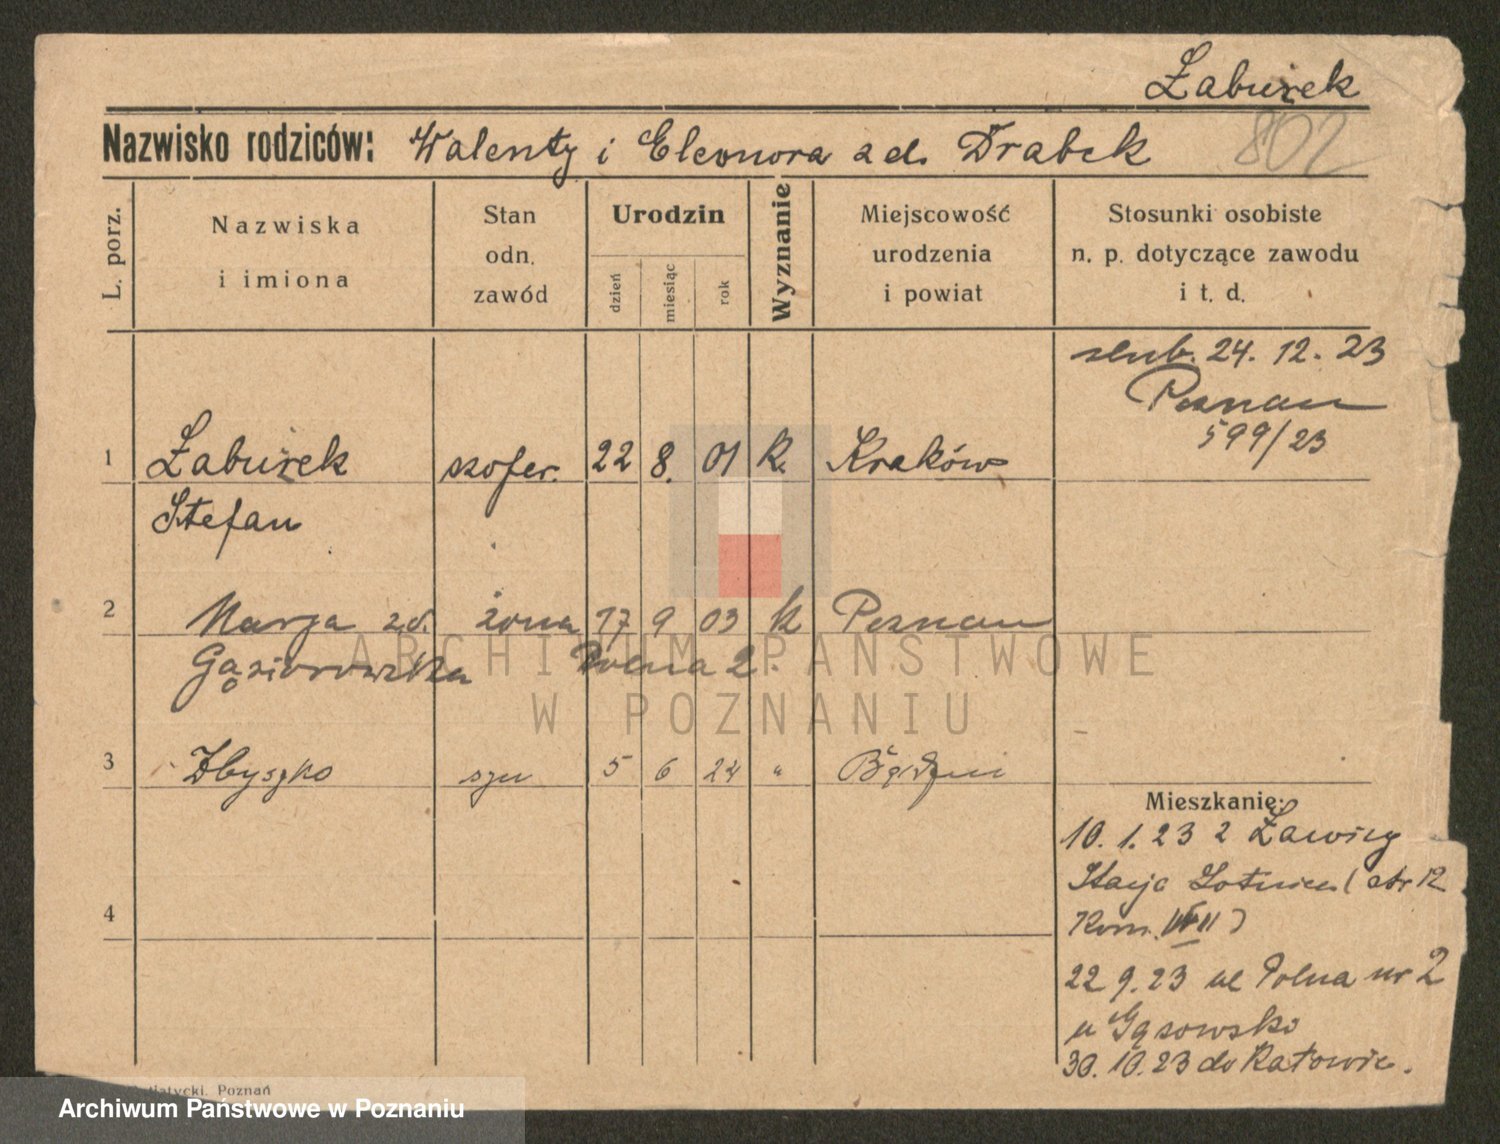 Żaburek
Nazwisko rodziców: Walenty i Eleonora zd. Drabek
802
L. porz.
Nazwiska
i imiona
Stan
odn.
zawód
Urodzin
dzień
miesiąc
rok
Wyznanie
Miejscowość
urodzenia
i powiat
Stosunki osobiste
n. p. dotyczące zawodu
i t. d.
ślub. 24. 12. 23
Poznan
599/23
1 Żaburek szofer. 22 8. 01 k. Kraków
Stefan
2 Marja zd. żona 17 9 03 k Poznan
Gąsiorowska Polna 2.
3 Zbyszko syn 5 6 24 "
4
Mieszkanie:
10. 1. 23 z Ławicy
Stacja Lotnicza (
Kom.
22 9. 23 ul Polna nr 2
u Gąsowsko
30. 10. 23 do Katowic.
ARCHIWUM PAŃSTWOWE
W POZNANIU
Poznań
Archiwum Państwowe w Poznaniu